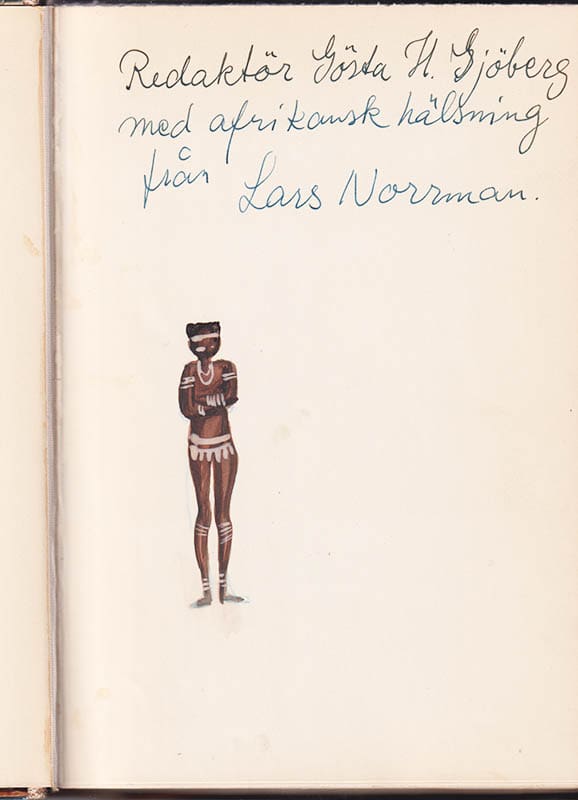 Redaktör Gösta H. Sjöberg
med afrikansk hälsning
från Lars Norrman.